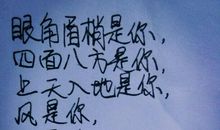 眼角眉梢是你,
四面八方是你,
上天入地是你,
风是你,